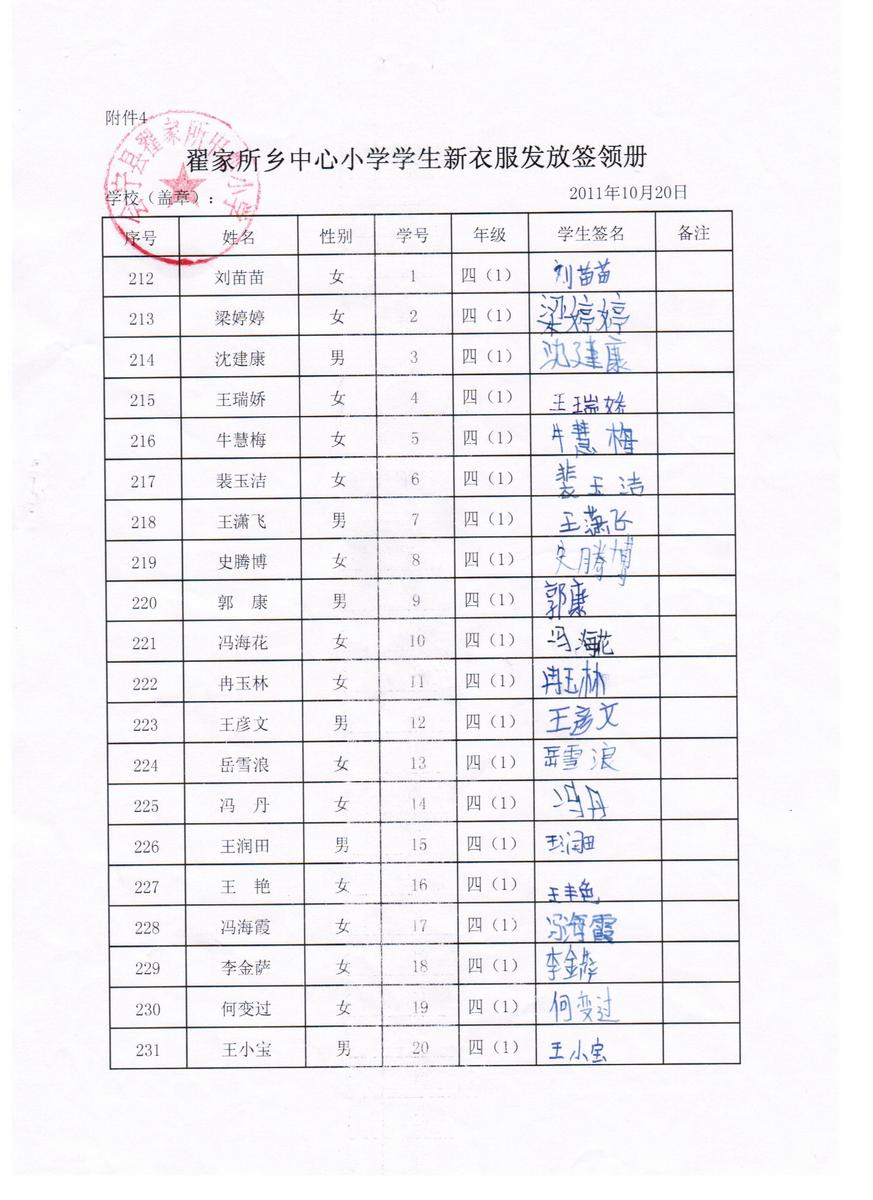 附件4
翟家所乡中心小学学生新衣服发放签领册
学校（盖章）： 2011年10月20日
序号 姓名 性别 学号 年级 学生签名 备注
212 刘苗苗 女 1 四（1） 刘苗苗
213 梁婷婷 女 2 四（1） 梁婷婷
214 沈建康 男 3 四（1） 沈建康
215 王瑞娇 女 4 四（1） 王瑞娇
216 牛慧梅 女 5 四（1） 牛慧梅
217 裴玉洁 女 6 四（1） 裴玉洁
218 王潇飞 男 7 四（1） 王潇飞
219 史腾博 女 8 四（1） 史腾博
220 郭 康 男 9 四（1） 郭康
221 冯海花 女 10 四（1） 冯海花
222 冉玉林 女 11 四（1） 冉玉林
223 王彦文 男 12 四（1） 王彦文
224 岳雪浪 女 13 四（1） 岳雪浪
225 冯 丹 女 14 四（1） 冯丹
226 王润田 男 15 四（1） 王润田
227 王 艳 女 16 四（1） 王艳
228 冯海霞 女 17 四（1） 冯海霞
229 李金萨 女 18 四（1） 李金萨
230 何变过 女 19 四（1） 何变过
231 王小宝 男 20 四（1） 王小宝